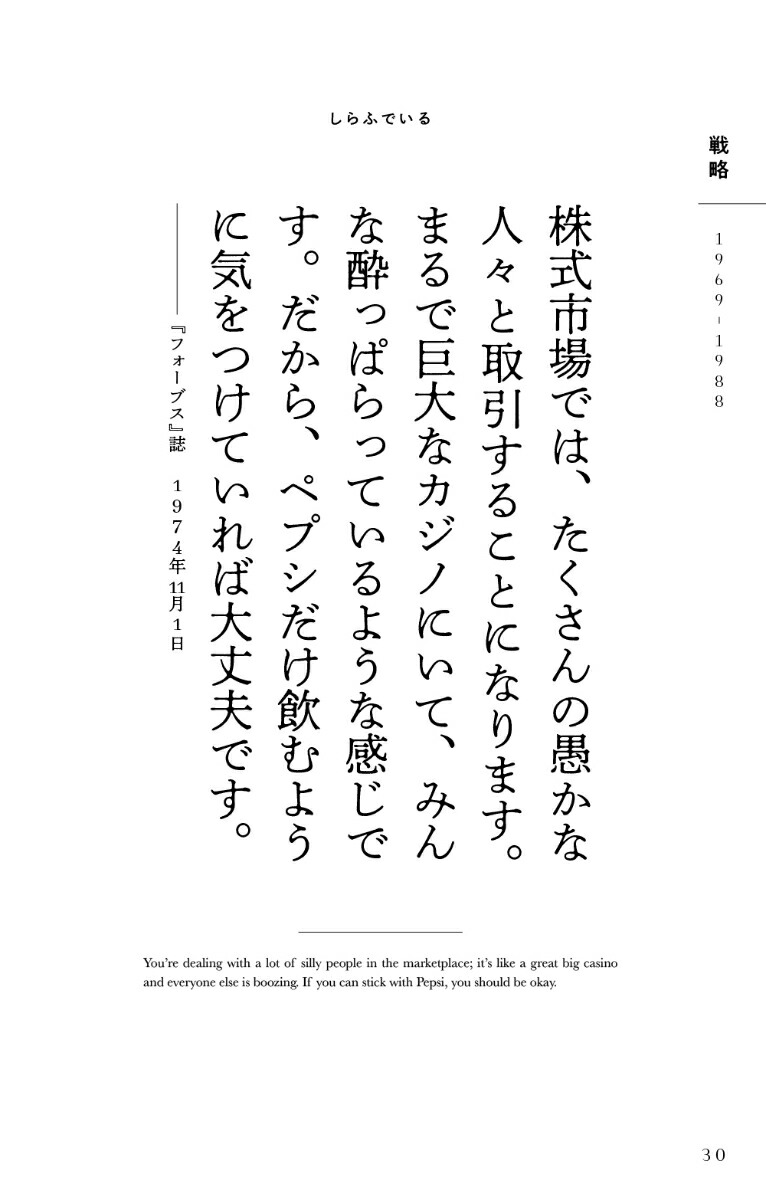 しらふでいる
戦略
1969-1988
株式市場では、たくさんの愚かな
人々と取引することになります。
まるで巨大なカジノにいて、みん
な酔っぱらっているような感じで
す。だから、ペプシだけ飲むよう
に気をつけていれば大丈夫です。
――『フォーブス』誌 1974年11月1日
You're dealing with a lot of silly people in the marketplace; it's like a great big casino
and everyone else is boozing. If you can stick with Pepsi, you should be okay.
30